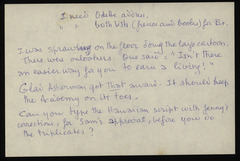 I need Odette address,
" " both sets (prewar and books) for Br.
I was sprawling on the floor doing the Lays cartoon.
There were onlookers. One said, "Isn't there
an easier way for you to earn a living!"
Glad Ackerman got that award. It should keep
the Academy on its toes.
Can you type the Hawaiian script with Jenny's
corrections, for Sam's approval, before you do
the triplicates?